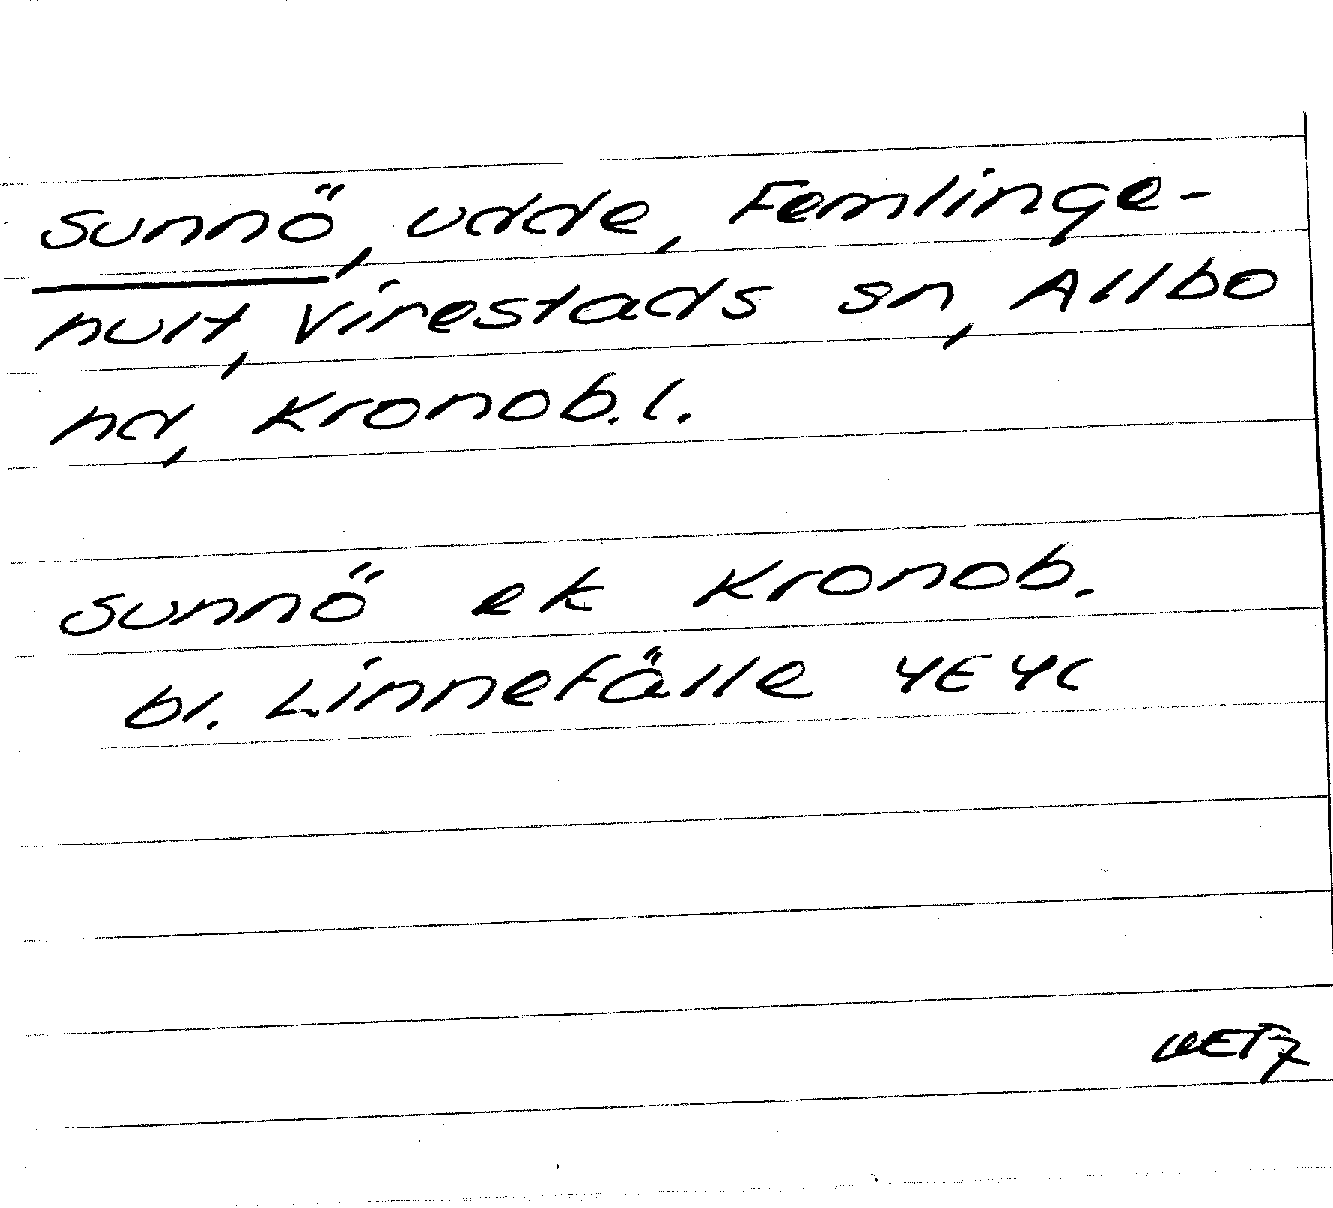 Sunnö, udde, Femlinge-
hult, Virestads sn, Allbo
hd, Kronob. l.
Sunnö ek Kronob.
bl. Linnefälle 4E 4C